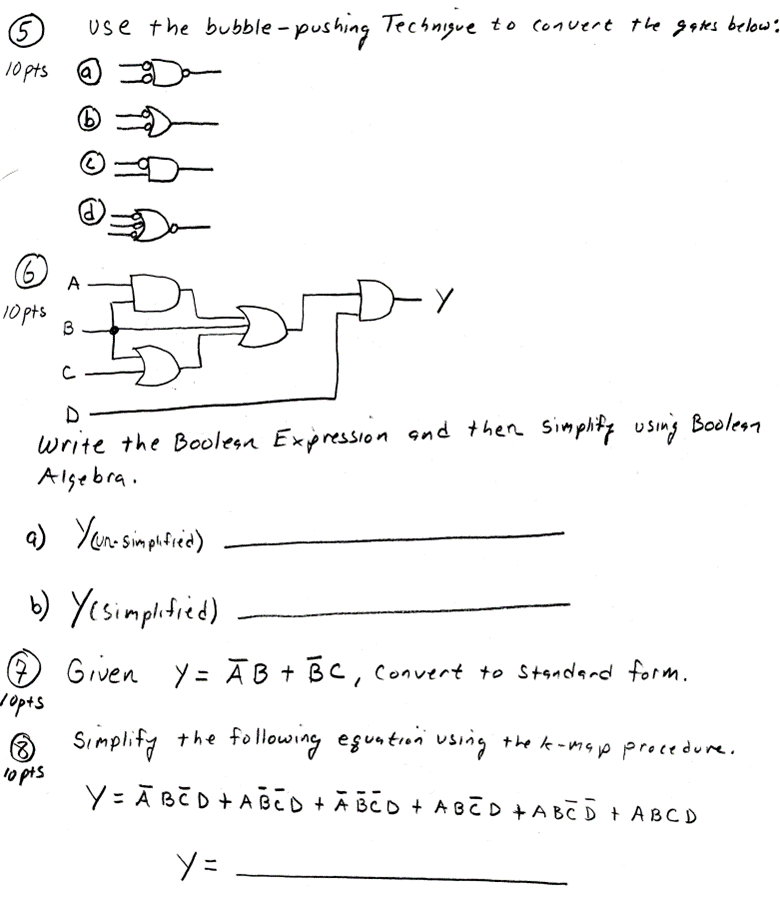 ⑤ Use the bubble-pushing Technique to convert the gates below:
10 pts ⓐ
ⓑ
ⓒ
ⓓ
⑥ A
10 pts
B
C
D
Y
Write the Boolean Expression and then simplify using Boolean
Algebra.
a) Y(un-simplified)
b) Y(simplified)
⑦ Given Y = A̅B + B̅C, convert to standard form.
10pts
⑧ Simplify the following equation using the k-map procedure.
10 pts
Y = A̅BC̅D + AB̅C̅D + A̅B̅C̅D + ABC̅D + ABC̅D̅ + ABCD
Y =